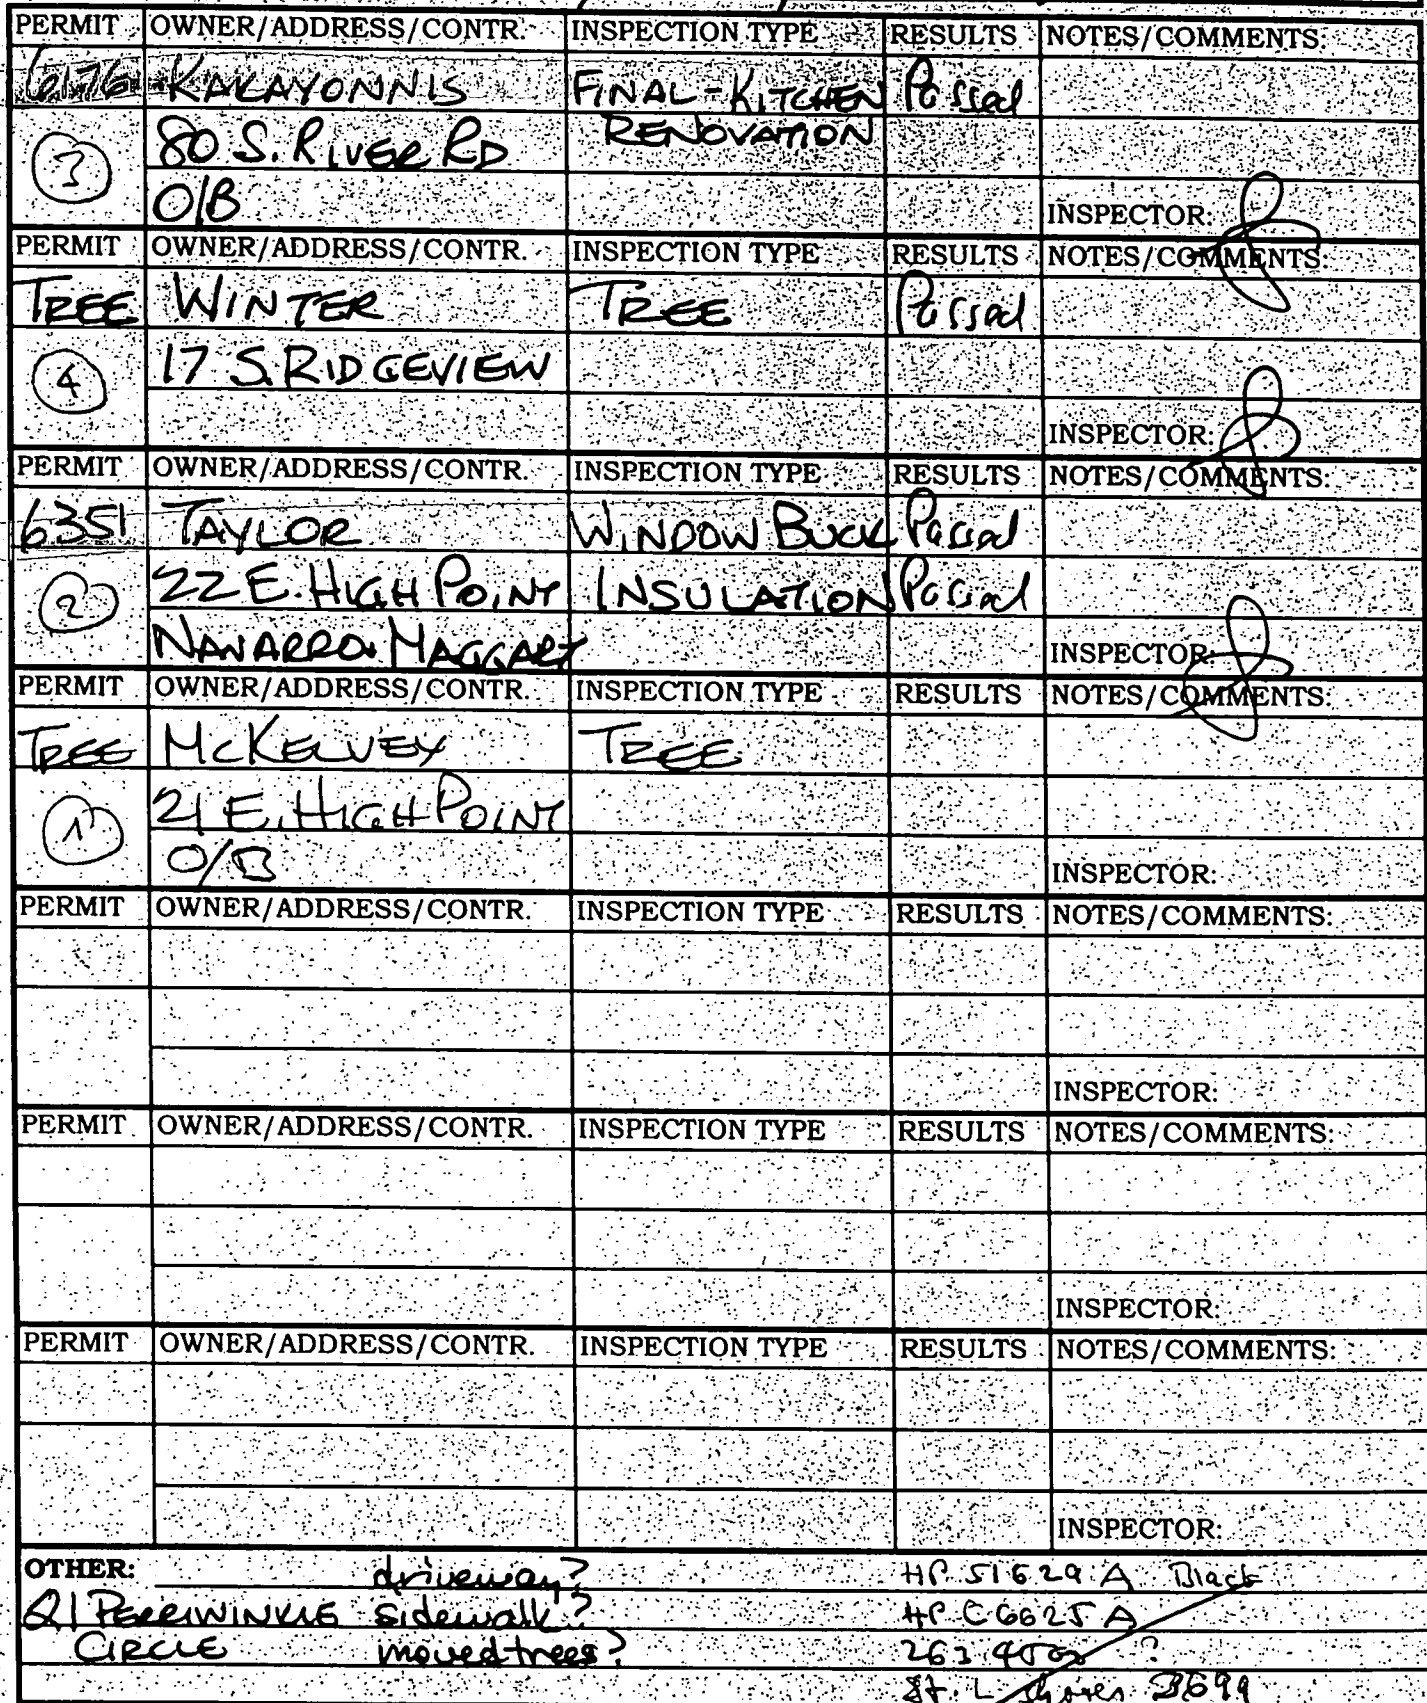 PERMIT OWNER/ADDRESS/CONTR. INSPECTION TYPE RESULTS NOTES/COMMENTS:
6176 KAKAYONNIS FINAL-KITCHEN Passed
3 80 S. RIVER RD RENOVATION
O/B INSPECTOR:
PERMIT OWNER/ADDRESS/CONTR. INSPECTION TYPE RESULTS NOTES/COMMENTS:
TREE WINTER TREE Passed
4 17 S. RIDGEVIEW
INSPECTOR:
PERMIT OWNER/ADDRESS/CONTR. INSPECTION TYPE RESULTS NOTES/COMMENTS:
6351 TAYLOR WINDOW BUCK Passed
2 22 E. HIGH POINT INSULATION Passed
NAVARRO. MAGGART INSPECTOR:
PERMIT OWNER/ADDRESS/CONTR. INSPECTION TYPE RESULTS NOTES/COMMENTS:
TREE MCKELVEY TREE
1 21 E. HIGH POINT
O/B INSPECTOR:
PERMIT OWNER/ADDRESS/CONTR. INSPECTION TYPE RESULTS NOTES/COMMENTS:
INSPECTOR:
PERMIT OWNER/ADDRESS/CONTR. INSPECTION TYPE RESULTS NOTES/COMMENTS:
INSPECTOR:
PERMIT OWNER/ADDRESS/CONTR. INSPECTION TYPE RESULTS NOTES/COMMENTS:
INSPECTOR:
OTHER: driveway? HP 51629 A Black
PERRIWINKLE sidewalk? HP C6625 A
CIRCLE moved trees? 263 ?
St. L